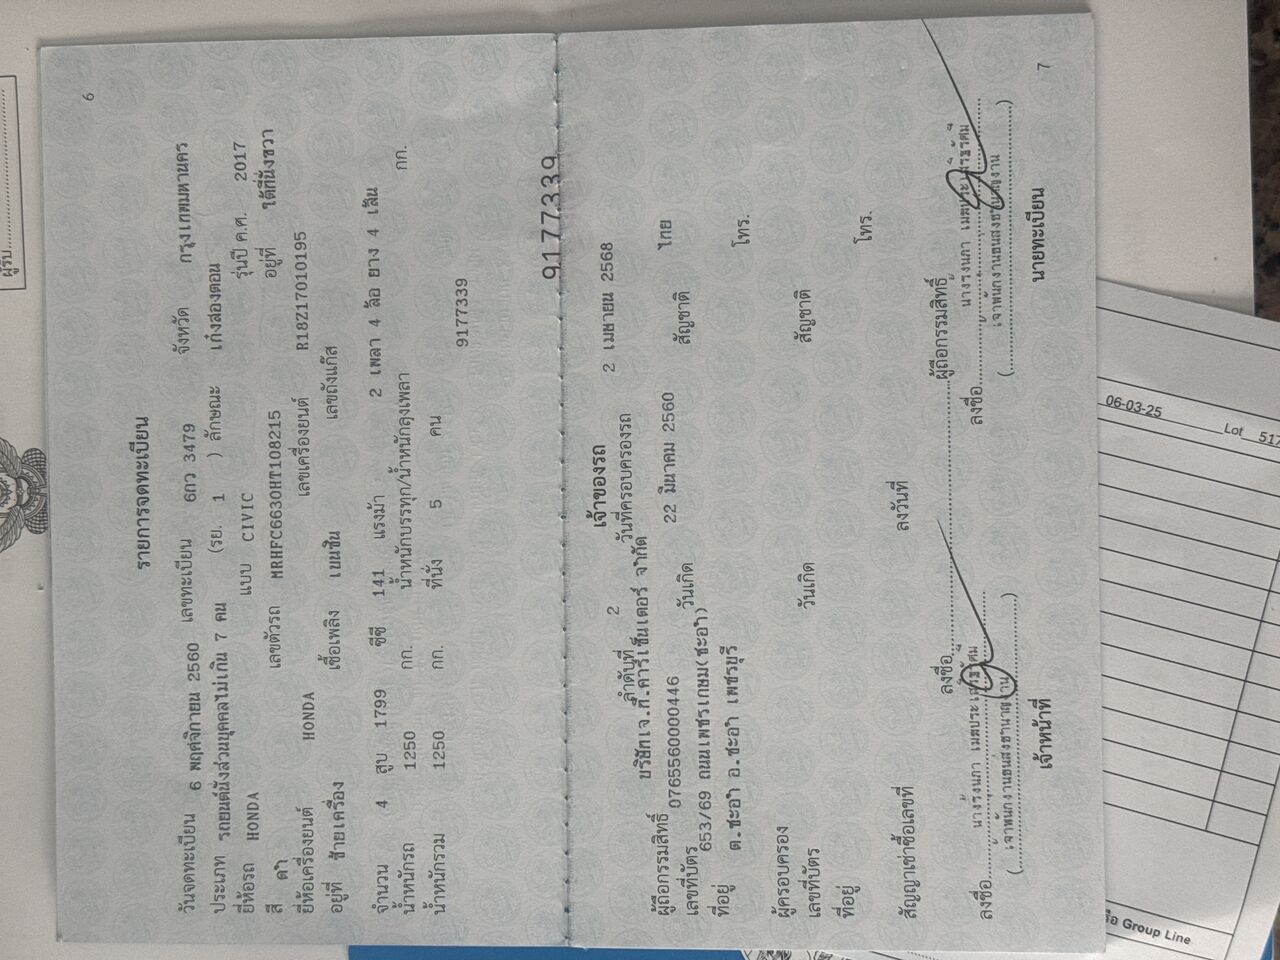 6
รายการจดทะเบียน
วันจดทะเบียน 6 พฤศจิกายน 2560 เลขทะเบียน 6กว 3479 จังหวัด กรุงเทพมหานคร
ประเภท รถยนต์นั่งส่วนบุคคลไม่เกิน 7 คน (รย. 1 ) ลักษณะ เก๋งสองตอน
ยี่ห้อรถ HONDA แบบ CIVIC รุ่นปี ค.ศ. 2017
สี ดำ เลขตัวรถ MRHFC6630HT108215 อยู่ที่ ใต้ที่นั่งขวา
ยี่ห้อเครื่องยนต์ HONDA เลขเครื่องยนต์ R18Z17010195
อยู่ที่ ซ้ายเครื่อง เชื้อเพลิง เบนซิน เลขถังแก๊ส
จำนวน 4 สูบ 1799 ซีซี 141 แรงม้า 2 เพลา 4 ล้อ ยาง 4 เส้น
น้ำหนักรถ 1250 กก. น้ำหนักบรรทุก/น้ำหนักลงเพลา กก.
น้ำหนักรวม 1250 กก. ที่นั่ง 5 คน
9177339
9177339
เจ้าของรถ
ลำดับที่ 2 วันที่ครอบครองรถ 2 เมษายน 2568
ผู้ถือกรรมสิทธิ์ บริษัทเจ.ที.คาร์เซ็นเตอร์ จำกัด
เลขที่บัตร 0765560000446 วันเกิด 22 มีนาคม 2560 สัญชาติ ไทย
ที่อยู่ 653/69 ถนนเพชรเกษม(ชะอำ)
ต.ชะอำ อ.ชะอำ เพชรบุรี โทร.
ผู้ครอบครอง
เลขที่บัตร วันเกิด สัญชาติ
ที่อยู่ โทร.
สัญญาเช่าซื้อเลขที่ ลงวันที่
ลงชื่อ ผู้ถือกรรมสิทธิ์
ลงชื่อ ลงชื่อ
เจ้าหน้าที่ นายทะเบียน
7
ผู้รับ
06-03-25
Lot 517
Group Line